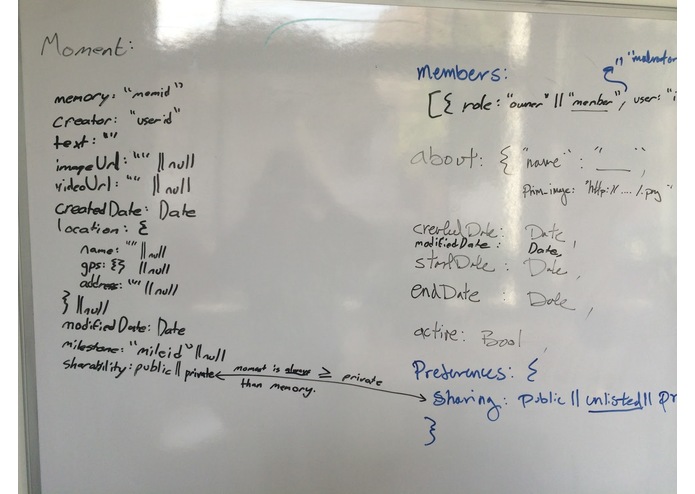 Moment:
memory: "momid"
Creator: "userid"
text: ""
imageUrl: "" || null
videoUrl: "" || null
createdDate: Date
location: {
name: "" || null
gps: {} || null
address: "" || null
} || null
modifiedDate: Date
milestone: "mileid" || null
sharability: public || private
moment is always ≥ private
than memory.
"moderator
members:
[{ role: "owner" || "member", user: "i
about: { "name" : "___",
Prim_image: "http:// .... /.png"
createdDate: Date,
modifiedDate: Date,
startDate: Date,
endDate: Date,
active: Bool,
Preferences: {
Sharing: Public || unlisted || Pr
}